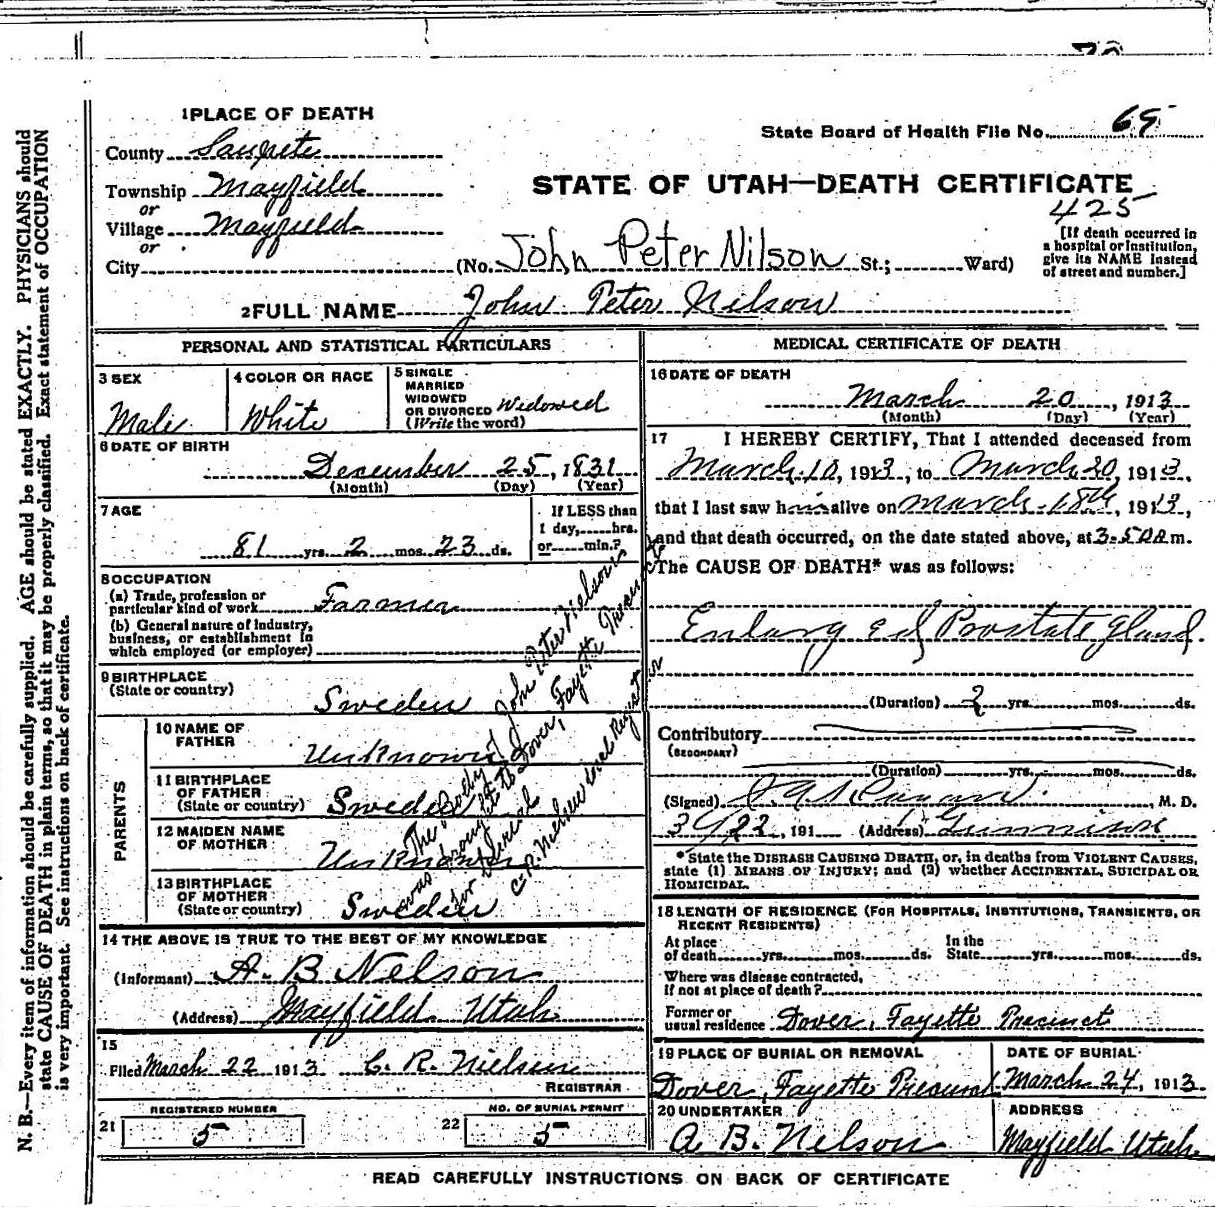 1 PLACE OF DEATH
State Board of Health File No. 65
County Sanpete
Township Mayfield
STATE OF UTAH—DEATH CERTIFICATE
or
425
Village Mayfield
or
City (No. John Peter Nilson St.; Ward)
[If death occurred in
a hospital or institution,
give its NAME instead
of street and number.]
2 FULL NAME John Peter Nilson
PERSONAL AND STATISTICAL PARTICULARS
3 SEX
Male
4 COLOR OR RACE
White
5 SINGLE
MARRIED
WIDOWED
OR DIVORCED Widowed
(Write the word)
6 DATE OF BIRTH
December 25, 1831
(Month) (Day) (Year)
7 AGE
81 yrs. 2 mos. 23 ds.
If LESS than
1 day, hrs.
or min.?
8 OCCUPATION
(a) Trade, profession or
particular kind of work Farmer
(b) General nature of industry,
business, or establishment in
which employed (or employer)
9 BIRTHPLACE
(State or country)
Sweden
PARENTS
10 NAME OF
FATHER
Unknown
11 BIRTHPLACE
OF FATHER
(State or country) Sweden
12 MAIDEN NAME
OF MOTHER
Unknown
13 BIRTHPLACE
OF MOTHER
(State or country) Sweden
The body of John Peter Nelson
was brought to Dover, Fayette
for burial
C. R. Nielsen Local Registrar
14 THE ABOVE IS TRUE TO THE BEST OF MY KNOWLEDGE
(Informant) A. B Nelson
(Address) Mayfield Utah
15
Filed March 22 1913 C. R. Nielsen
REGISTRAR
REGISTERED NUMBER
21 5
NO. OF BURIAL PERMIT
22 5
MEDICAL CERTIFICATE OF DEATH
16 DATE OF DEATH
March 20, 1913
(Month) (Day) (Year)
17 I HEREBY CERTIFY, That I attended deceased from
March 10, 1913, to March 20, 1913,
that I last saw him alive on March 18th, 1913,
and that death occurred, on the date stated above, at m.
The CAUSE OF DEATH* was as follows:
Enlarged Prostate gland
(Duration) 2 yrs. mos. ds.
Contributory
(SECONDARY)
(Duration) yrs. mos. ds.
(Signed) M. D.
3/22, 191 (Address) Gunnison
*State the DISEASE CAUSING DEATH, or, in deaths from VIOLENT CAUSES,
state (1) MEANS OF INJURY; and (2) whether ACCIDENTAL, SUICIDAL OR
HOMICIDAL.
18 LENGTH OF RESIDENCE (FOR HOSPITALS, INSTITUTIONS, TRANSIENTS, OR
RECENT RESIDENTS)
At place In the
of death yrs. mos. ds. State yrs. mos. ds.
Where was disease contracted,
if not at place of death?
Former or
usual residence Dover, Fayette Precinct
19 PLACE OF BURIAL OR REMOVAL
Dover, Fayette Precinct
DATE OF BURIAL
March 24, 1913
20 UNDERTAKER
A B. Nelson
ADDRESS
Mayfield Utah
READ CAREFULLY INSTRUCTIONS ON BACK OF CERTIFICATE
N. B.—Every item of information should be carefully supplied. AGE should be stated EXACTLY. PHYSICIANS should
state CAUSE OF DEATH in plain terms, so that it may be properly classified. Exact statement of OCCUPATION
is very important. See instructions on back of certificate.